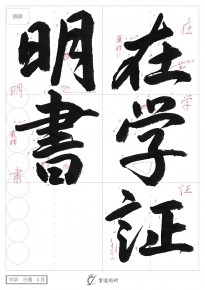 在学証
明書
在
学
証
明
書
中学 行書 8月
書道教研